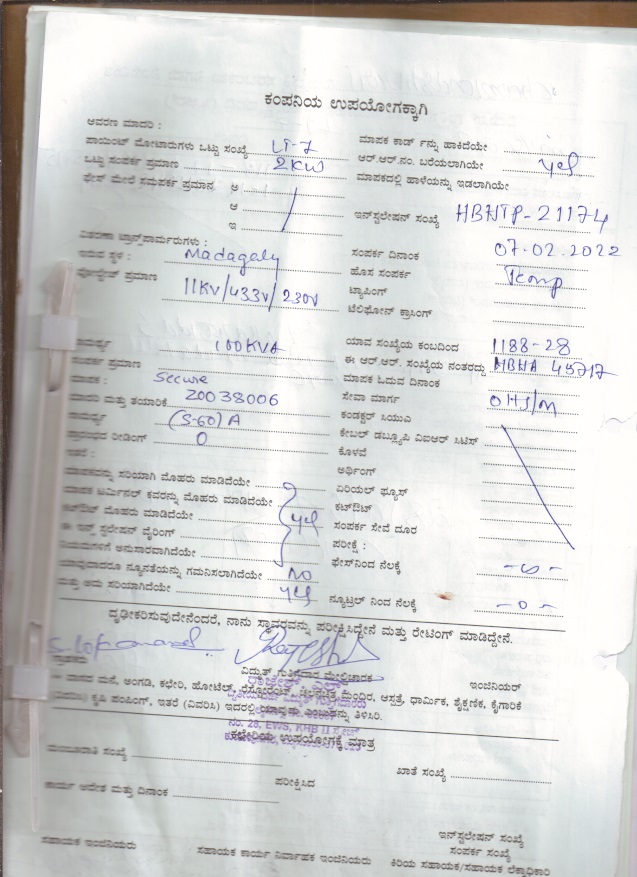 ಕಂಪನಿಯ ಉಪಯೋಗಕ್ಕಾಗಿ
ಆವರಣ ಮಾದರಿ :
ಪಾಯಿಂಟ್ ಮೋಟಾರುಗಳು ಒಟ್ಟು ಸಂಖ್ಯೆ LT-7
ಒಟ್ಟು ಸಂಪರ್ಕ ಪ್ರಮಾಣ 2KW
ಫೇಸ್ ಮೇಲೆ ಸಮಪರ್ಕ ಪ್ರಮಾನ ಅ
ಆ
ಇ
ವಿತರಣಾ ಟ್ರಾನ್ಸ್‌ಫಾರ್ಮರುಗಳು :
ಇರುವ ಸ್ಥಳ : Madagaly
ವೋಲ್ಟೇಜ್ ಪ್ರಮಾಣ 11KV/433V/230V
ಸಾಮರ್ಥ್ಯ 100KVA
ಸಂಪರ್ಕ ಪ್ರಮಾಣ
ಮಾಪಕ : Secure
ಮಾದರಿ ಮತ್ತು ತಯಾರಿಕೆ 20038006
ಸಾಮರ್ಥ್ಯ (5-60)A
ಪ್ರಾರಂಭದ ರೀಡಿಂಗ್ 0
ಇತರೆ :
ಮಾಪಕವನ್ನು ಸರಿಯಾಗಿ ಮೊಹರು ಮಾಡಿದೆಯೇ
ಮಾಪಕ ಟರ್ಮಿನಲ್ ಕವರನ್ನು ಮೊಹರು ಮಾಡಿದೆಯೇ
ಕಟ್‌ಔಟ್ ಮೊಹರು ಮಾಡಿದೆಯೇ yes
ಈ ಇನ್ಸ್ ಸ್ಟಲೇಷನ ವೈರಿಂಗ್
ನಿಯಮಗಳಿಗೆ ಅನುಸಾರವಾಗಿದೆಯೇ
ಯಾವುದಾದರೂ ನ್ಯೂನತೆಯನ್ನು ಗಮನಿಸಲಾಗಿದೆಯೇ NO
ಮತ್ತು ಅದು ಸರಿಯಾಗಿದೆಯೇ yes
ಮಾಪಕ ಕಾರ್ಡ್ ರ್ಕನ್ನು ಹಾಕಿದೆಯೇ
ಆರ್.ಆರ್.ನಂ. ಬರೆಯಲಾಗಿಯೇ yes
ಮಾಪಕದಲ್ಲಿ ಹಾಳೆಯನ್ನು ಇಡಲಾಗಿಯೇ
ಇನ್‌ಸ್ಟಲೇಷನ ಸಂಖ್ಯೆ HBHTP-21174
ಸಂಪರ್ಕ ದಿನಾಂಕ 07.02.2022
ಹೊಸ ಸಂಪರ್ಕ Temp
ಟ್ಯಾಪಿಂಗ್
ಟೆಲಿಫೋನ್ ಕ್ರಾಸಿಂಗ್
ಯಾವ ಸಂಖ್ಯೆಯ ಕಂಬದಿಂದ 1188-28
ಈ ಆರ್.ಆರ್. ಸಂಖ್ಯೆಯ ನಂತರದ್ದು HBHA 45717
ಮಾಪಕ ಓದುವ ದಿನಾಂಕ
ಸೇವಾ ಮಾರ್ಗ OHS/M
ಕಂಡಕ್ಟರ್ ಸಿಯುಎ
ಕೇಬಲ್ ಡಬ್ಲ್ಯೂಪಿ ವಿಐಆರ್ ಸಿಟಿಸ್
ಕೊಳವೆ
ಅರ್ಥಿಂಗ್
ಏರಿಯಲ್ ಫ್ಯೂಸ್
ಕಟ್‌ಔಟ್
ಸಂಪರ್ಕ ಸೇವೆ ದೂರ
ಪರೀಕ್ಷೆ :
ಫೇಸ್‌ನಿಂದ ನೆಲಕ್ಕೆ
ನ್ಯೂಟ್ರಲ್ ನಿಂದ ನೆಲಕ್ಕೆ -0-
ದೃಢೀಕರಿಸುವುದೇನೆಂದರೆ, ನಾನು ಸ್ಥಾವರವನ್ನು ಪರೀಕ್ಷಿಸಿದ್ದೇನೆ ಮತ್ತು ರೇಟಿಂಗ್ ಮಾಡಿದ್ದೇನೆ.
ವಿದ್ಯುತ್ ಗುತ್ತಿಗೆದಾರ ಮೇಲ್ವಿಚಾರಕ ಇಂಜಿನಿಯರ್
ಈ ವಾಸದ ಮನೆ, ಅಂಗಡಿ, ಕಛೇರಿ, ಹೋಟೆಲ್, ರೆಸ್ಟೋರೆಂಟ್, ಮಂದಿರ, ಆಸ್ಪತ್ರೆ, ಧಾರ್ಮಿಕ, ಶೈಕ್ಷಣಿಕ, ಕೈಗಾರಿಕೆ
ಕೃಷಿ ಪಂಪಿಂಗ್, ಇತರೆ (ವಿವರಿಸಿ) ಇದರಲ್ಲಿ ತಿಳಿಸಿರಿ.
ನಂ. 28, EWS, KHB II
ಕಛೇರಿಯ ಉಪಯೋಗಕ್ಕೆ ಮಾತ್ರ
ಮಂಜೂರಾತಿ ಸಂಖ್ಯೆ ಖಾತೆ ಸಂಖ್ಯೆ
ಕಾರ್ಯ ಆದೇಶ ಮತ್ತು ದಿನಾಂಕ ಪರೀಕ್ಷಿಸಿದ
ಇನ್‌ಸ್ಟಲೇಷನ ಸಂಖ್ಯೆ
ಸಂಪರ್ಕ ಸಂಖ್ಯೆ
ಸಹಾಯಕ ಇಂಜಿನಿಯರು ಸಹಾಯಕ ಕಾರ್ಯ ನಿರ್ವಾಹಕ ಇಂಜಿನಿಯರು ಕಿರಿಯ ಸಹಾಯಕ/ಸಹಾಯಕ ಲೆಕ್ಕಾಧಿಕಾರಿ